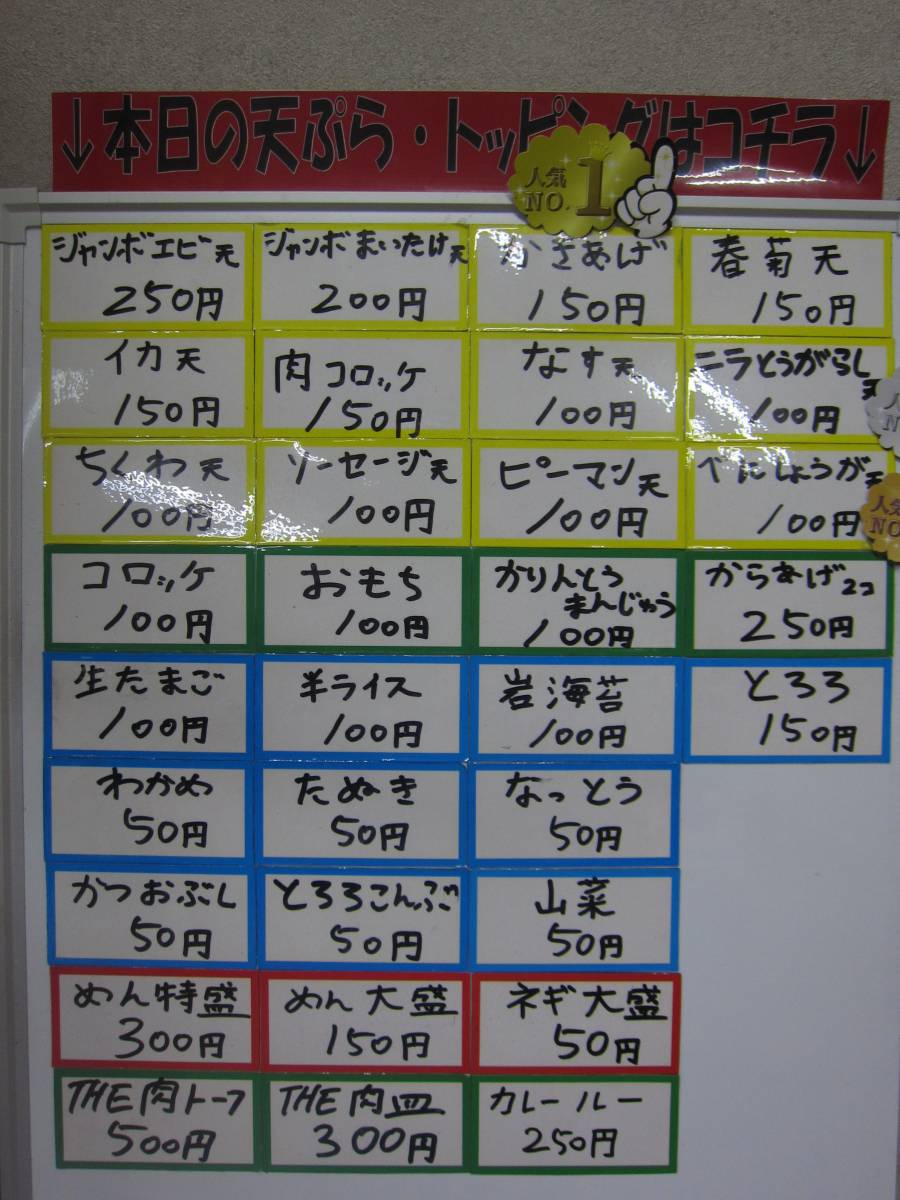 ↓本日の天ぷら・トッピングはコチラ↓
人気
NO.1
ジャンボエビ天
250円
ジャンボまいたけ天
200円
かきあげ
150円
春菊天
150円
イカ天
150円
肉コロッケ
150円
なす天
100円
ニラとうがらし天
100円
ちくわ天
100円
ソーセージ天
100円
ピーマン天
100円
べにしょうが天
100円
人気
NO.
コロッケ
100円
おもち
100円
かりんとう
まんじゅう
100円
からあげ2コ
250円
生たまご
100円
半ライス
100円
岩海苔
100円
とろろ
150円
わかめ
50円
たぬき
50円
なっとう
50円
かつおぶし
50円
とろろこんぶ
50円
山菜
50円
めん特盛
300円
めん大盛
150円
ネギ大盛
50円
THE肉トーフ
500円
THE肉皿
300円
カレールー
250円